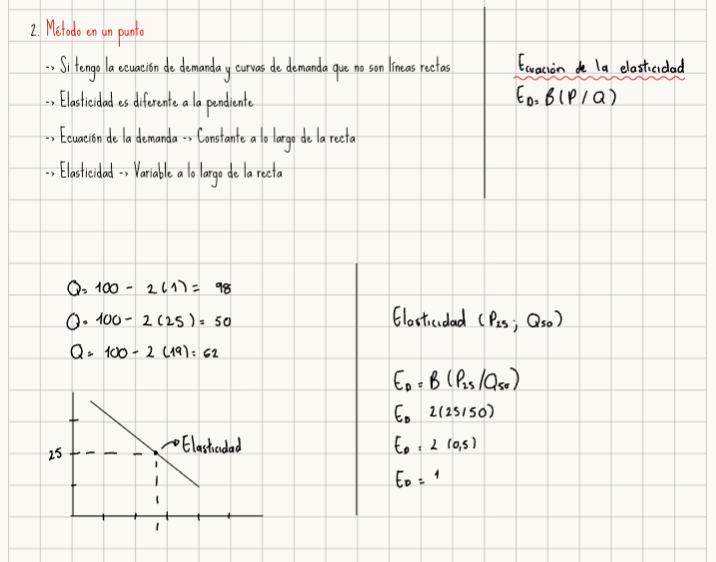 2. Método en un punto
--> Si tengo la ecuación de demanda y curvas de demanda que no son líneas rectas
--> Elasticidad es diferente a la pendiente
--> Ecuación de la demanda --> Constante a lo largo de la recta
--> Elasticidad --> Variable a lo largo de la recta
Ecuación de la elasticidad
ED= B(P/Q)
Q= 100 - 2(1) = 98
Q= 100 - 2(25) = 50
Q= 100 - 2(19) = 62
25
Elasticidad
Elasticidad (P25; Q50)
ED = B (P25/Q50)
ED 2(25/50)
ED = 2 (0,5)
ED = 1